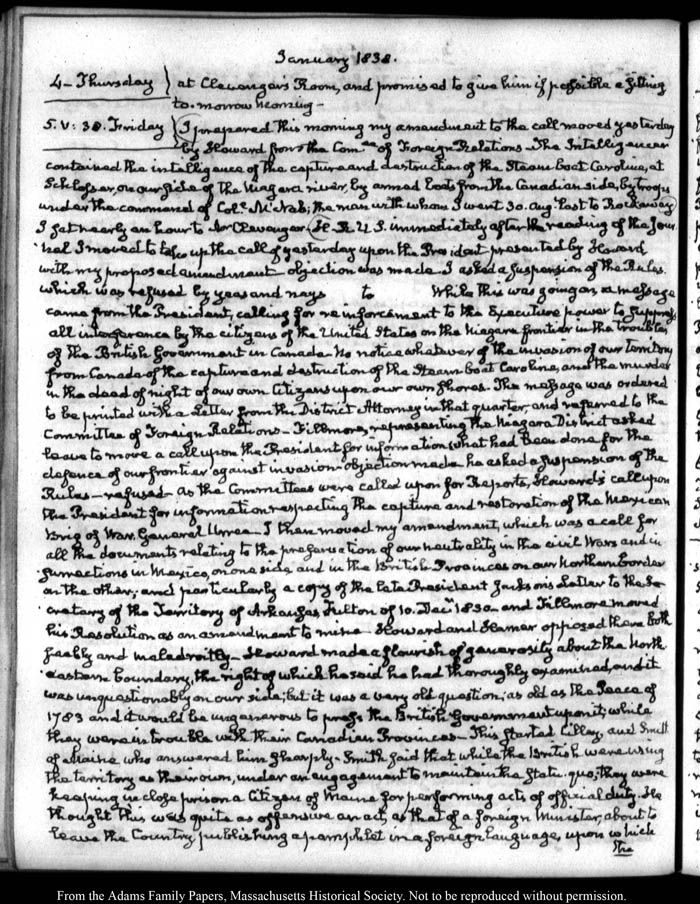 January 1838.
4-Thursday } at Clevenger's Room, and promised to give him if possible a sitting
to-morrow morning-
5. V: 30. Friday } I prepared this morning my amendment to the call moved yesterday
by Howard from the Comee of Foreign Relations- The Intelligencer
contained the intelligence of the capture and destruction of the Steam boat Caroline, at
Schlosser, on our side of the Niagara river, by armed boats from the Canadian side, by troops
under the command of Coll McNab; the man with whom I went 30. Aug. last to Rockaway
I sat nearly an hour to Mr Clevenger. H. R. U. S. immediately after the reading of the Jour
nal I moved to take up the call of yesterday upon the President presented by Howard
with my proposed amendment- objection was made- I asked a suspension of the Rules.
which was refused by yeas and nays to While this was going on, a message
came from the President, calling for reinforcement to the Executive power to suppress
all interference by the citizens of the United States on the Niagara frontier in the troubles
of the British Government in Canada- No notice whatever of the invasion of our territory
from Canada of the capture and destruction of the Steam boat Caroline, and the murder
in the dead of night of our own Citizens upon our own shores- The message was ordered
to be printed with a Letter from the District Attorney in that quarter, and referred to the
Committee of Foreign Relations- Fillmore, representing the Niagara District asked
leave to move a call upon the President for information what had been done for the
defence of our frontier against invasion- objection made- he asked a suspension of the
Rules- refused- As the Committees were called upon for Reports, Howard's call upon
the President for information respecting the capture and restoration of the Mexican
Brig of War, General Urrea- I then moved my amendment, which was a call for
all the documents relating to the preservation of our neutrality in the civil Wars and in
surrections in Mexico, on one side, and in the British Provinces on our Northern border
on the other; and particularly a copy of the late President Jackson's Letter to the Se
cretary of the Territory of Arkansas, Fulton of 10. Decr 1830- and Fillmore moved
his Resolution as an amendment to mine- Howard and Hamer opposed them both
feebly and maladroitly- Howard made a flourish of generosity about the North
eastern boundary, the right of which he said he had thoroughly examined, and it
was unquestionably on our side; but it was a very old question; as old as the Peace of
1783 and it would be ungenerous to press the British Government upon it; while
they were in trouble with their Canadian Provinces- This started Lilley, and Smith
of Maine who answered him sharply- Smith said that while the British were using
the territory as their own, under an engagement to maintain the statu-quo; they were
keeping in close prison a Citizen of Maine for performing acts of official duty. He
thought this was quite as offensive an act, as that of a foreign Minister, about to
leave the Country publishing a pamphlet in a foreign language, upon which
the
From the Adams Family Papers, Massachusetts Historical Society. Not to be reproduced without permission.